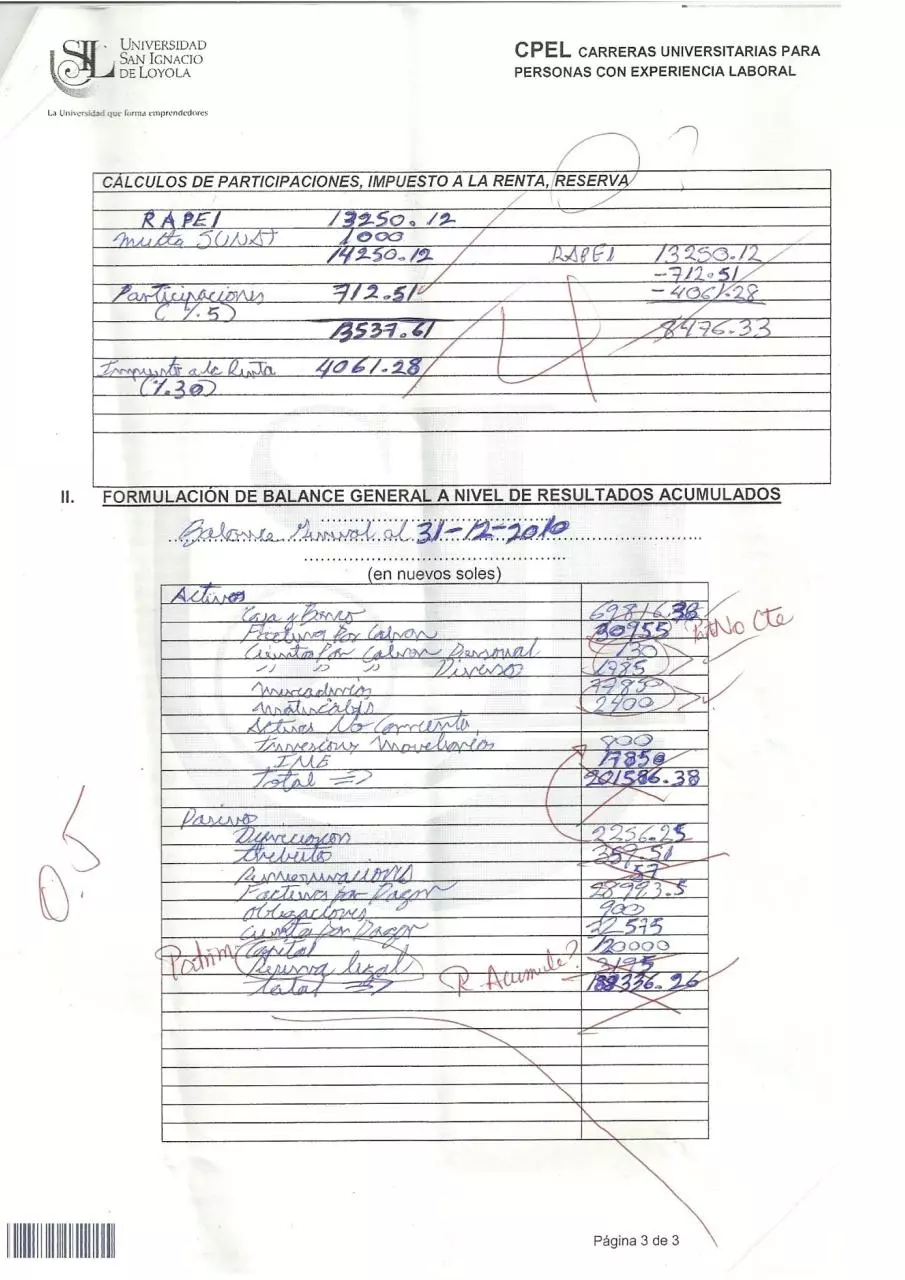 UNIVERSIDAD
SAN IGNACIO
DE LOYOLA
La Universidad que forma emprendedores
CPEL CARRERAS UNIVERSITARIAS PARA
PERSONAS CON EXPERIENCIA LABORAL
?
CÁLCULOS DE PARTICIPACIONES, IMPUESTO A LA RENTA, RESERVA
RAPEI 13250.12
Multa SUNAT 1000
14250.12 RAPEI 13250.12
-712.51
Participaciones 712.51 -4061.28
(%5)
13537.61 8476.33
4
Impuesto a la Renta 4061.28
(%30)
II. FORMULACIÓN DE BALANCE GENERAL A NIVEL DE RESULTADOS ACUMULADOS
Balance General al 31-12-2010
(en nuevos soles)
Activos
Caja y Banco 69816.38
Factura por Cobrar 30955 No Cte
Cuentas por Cobrar Personal 130
" " " Diverso 1985
Mercaderias 77850
2400
Activos No Corriente
Inversiones Mobeliarios 800
IME 17850
Total => 201586.38
Pasivo
2256.25
Tributo 359.51
Remuneraciones 57
Facturas por Pagar 28993.5
Obligaciones 900
Cuenta por Pagar 32575
Patrim Capital 120000
Reserva legal R Acumule? 3195
Total => 188336.26
0.5
Página 3 de 3